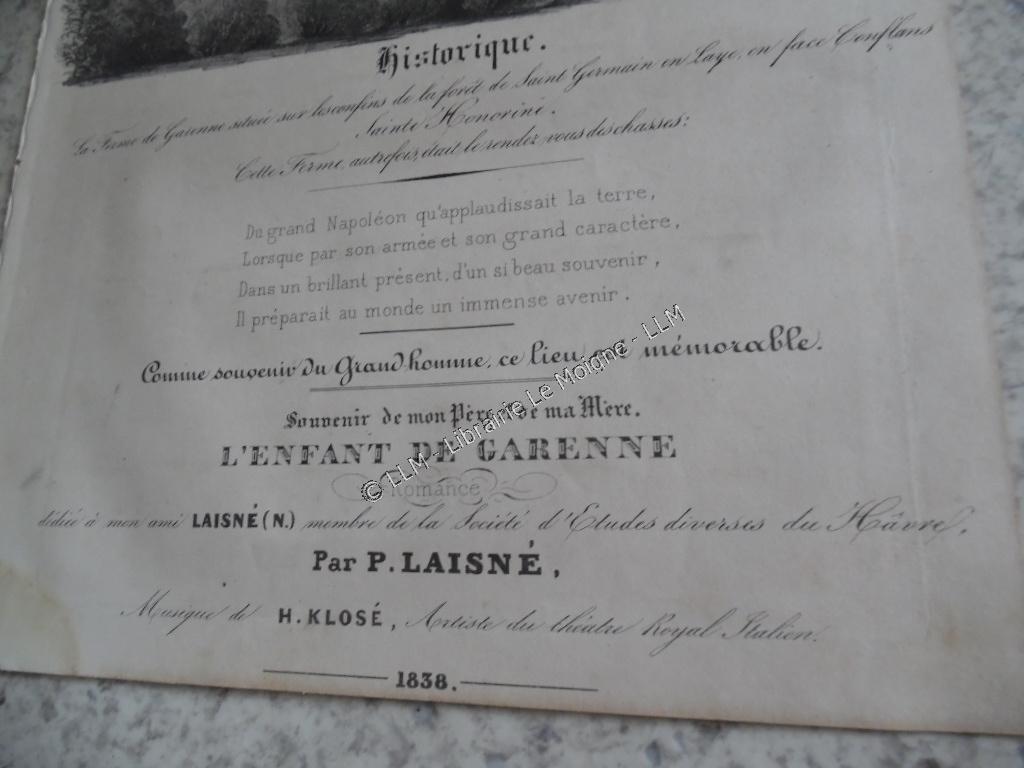 Historique.
La Ferme de Garenne située sur les confins de la forêt de Saint Germain en Laye, en face Conflans
Sainte Honorine.
Cette Ferme, autrefois, était le rendez vous des chasses:
Du grand Napoléon qu'applaudissait la terre,
Lorsque par son armée et son grand caractère,
Dans un brillant présent, d'un si beau souvenir,
Il préparait au monde un immense avenir.
Comme souvenir du Grand homme, ce lieu est mémorable.
Souvenir de mon Père et de ma Mère.
L'ENFANT DE GARENNE
Romance
dédiée à mon ami LAISNÉ (N.) membre de la Société d'Etudes diverses du Hâvre,
Par P. LAISNÉ,
Musique de H. KLOSÉ, Artiste du théatre Royal Italien.
1838.
© LLM - Librairie Le Moigne - LLM